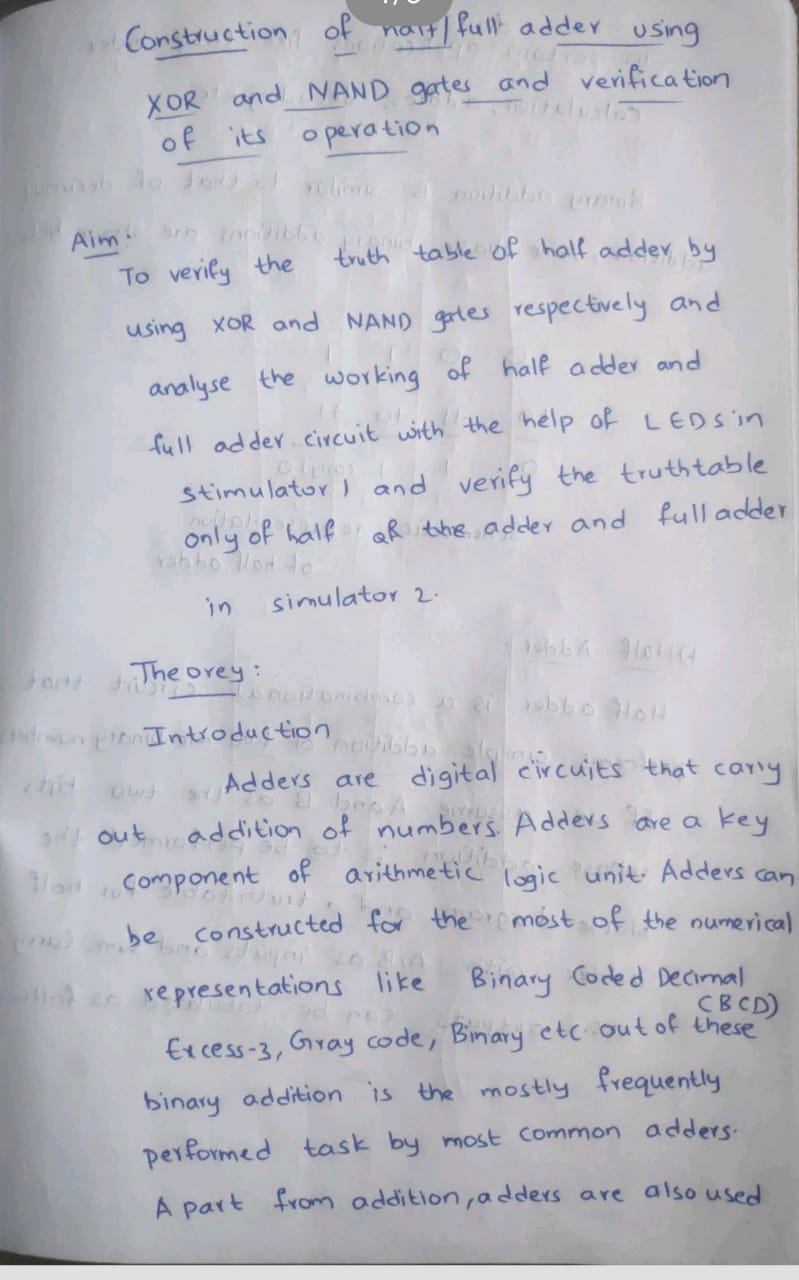 Construction of half/full adder using
XOR and NAND gates and verification
of its operation
Aim:
To verify the truth table of half adder by
using XOR and NAND gates respectively and
analyse the working of half adder and
full adder circuit with the help of LEDs in
stimulator 1 and verify the truthtable
only of half the adder and full adder
in simulator 2.
Theorey:
Introduction
Adders are digital circuits that carry
out addition of numbers. Adders are a key
component of arithmetic logic unit. Adders can
be constructed for the most of the numerical
representations like Binary Coded Decimal
(BCD)
Excess-3, Gray code, Binary etc. out of these
binary addition is the mostly frequently
performed task by most common adders.
A part from addition, adders are also used